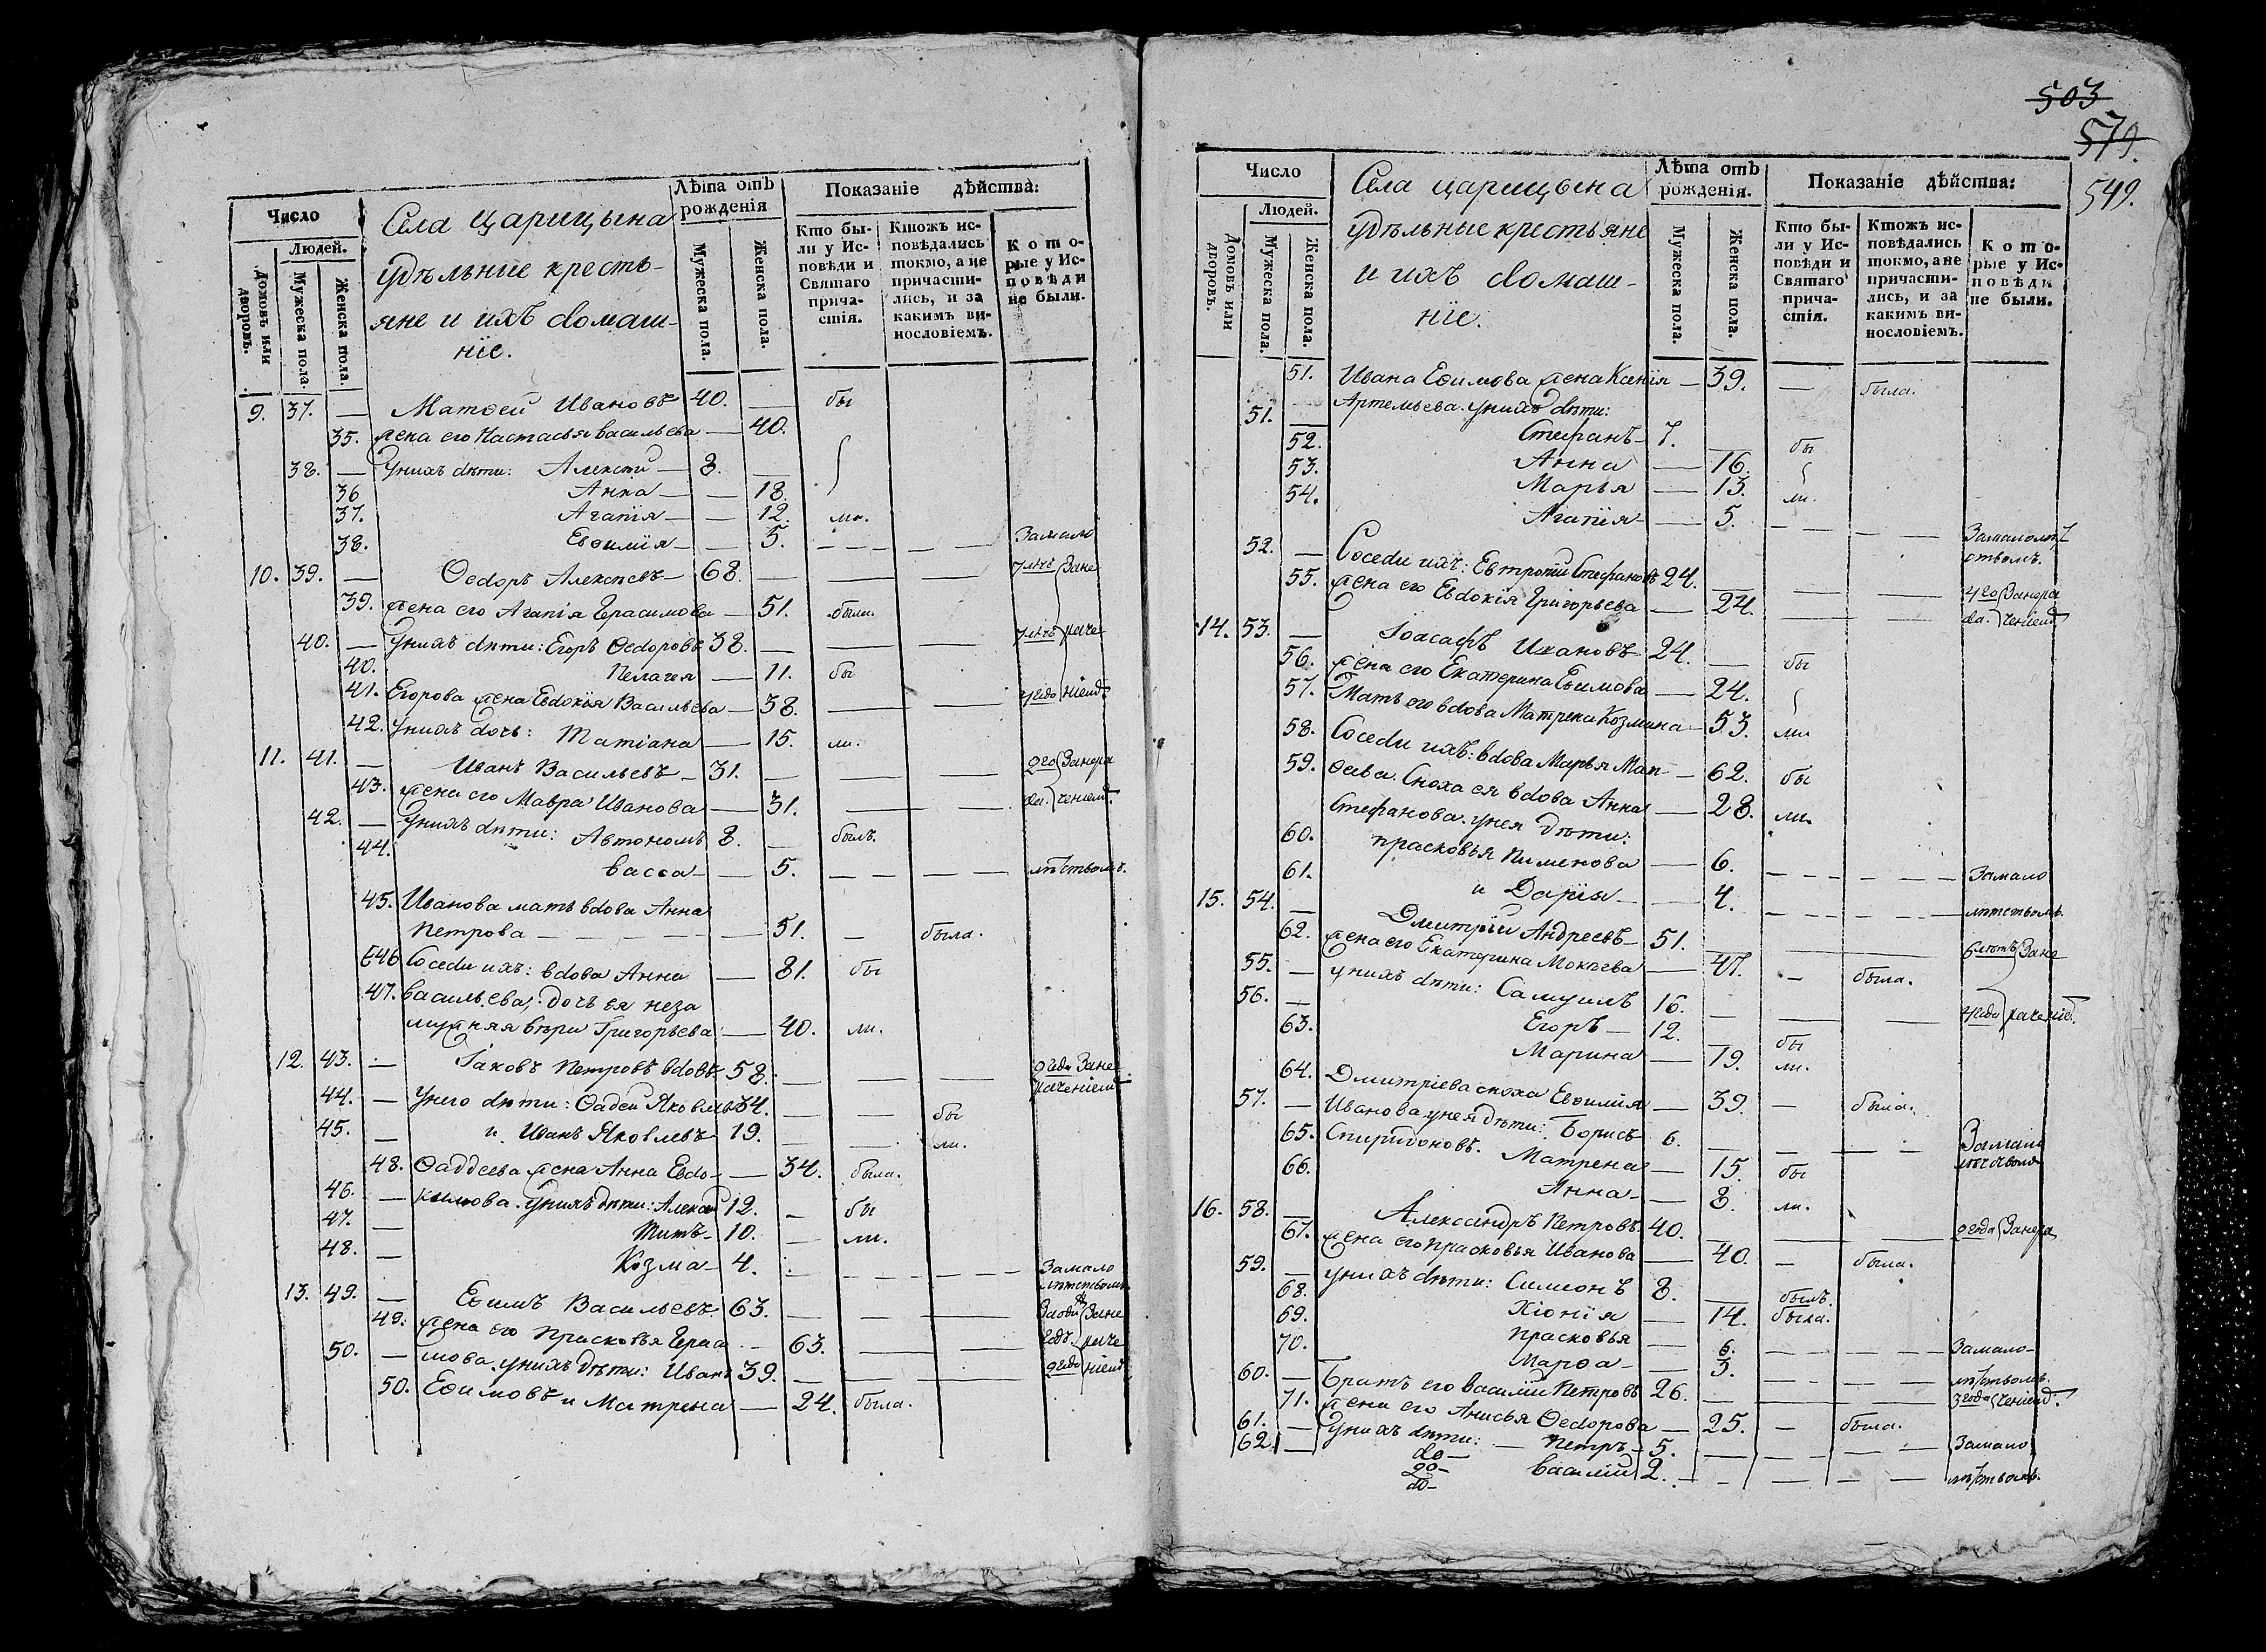 Число
Людей.
Домовъ или дворовъ.
Мужеска пола.
Женска пола.
Села Царицына
удѣльные кресть-
яне и ихъ домаш-
ніе.
Лѣта отъ рожденія
Мужеска пола.
Женска пола.
Показаніе дѣйства:
Кто бы-
ли у Ис-
повѣди и
Святаго
прича-
стія.
Ктожъ ис-
повѣдались
токмо, а не
причасти-
лись, и за
какимъ ви-
нословіемъ.
Кото-
рые у Ис-
повѣди
не были.
9. 37. — Матѳей Ивановъ 40. — бы
35. жена его Настасья Васильева — 40.
38. — у нихъ дѣти: Алексѣй — 8. —
36 Анна — — 18.
37. Агапія — — 12. ли.
38. Евѳимія — — 5. — — — — Замало
10. 39. — Ѳедоръ Алексѣевъ — 68. — — — 7 лѣтъ Зане
39. жена его Агапія Герасимова — 51. были.
40. — у нихъ дѣти: Егоръ Ѳедоровъ 38. — — — 7 лѣтъ раче
40. Пелагея — 11. бы
41. Егорова жена Евдокія Васильева — 38. — — 4 года ніемъ
42. у нихъ дочь: Татіана — 15. ли.
11. 41. — Иванъ Васильевъ — 31. — — — 2 го Занера
43. жена его Мавра Иванова — 31. — — да. ченіемъ.
42. — у нихъ дѣти: Автономъ 8. — былъ.
44. Васса — — 5. — — — — лѣтствомъ.
45. Иванова мать вдова Анна
Петрова — — — — — 51. — была.
46 Соседи ихъ: вдова Анна — 81. бы
47. Васильева, дочь ея неза
мужняя Вѣра Григорьева — 40. ли.
12. 43. — Іаковъ Петровъ вдовъ 58. — — — 2 года Зане
раченіемъ
44. — у него дѣти: Ѳадей Яковлевъ 34. — — бы
45. — и Иванъ Яковлевъ 19. — — ли.
48. Ѳаддеева жена Анна Евдо- — 34. была.
46. — кимова. у нихъ дѣти: Алексѣй 12. — бы
47. — Титъ — 10. — ли.
48. — Козма — 4. — — — — Замало
лѣтствомъ
13. 49. — Ефимъ Васильевъ 63. — — — За оди Зане
49. жена его Прасковья Гераси — 63. — — годъ раче
50. — мова. у нихъ дѣти: Иванъ 39. — — — 2 года ніемъ
50. Ефимовъ и Матрена — 24. была.
503
579.
549.
Число
Людей.
Домовъ или дворовъ.
Мужеска пола.
Женска пола.
Села Царицына
удѣльные крестьяне
и ихъ домаш-
ніе.
Лѣта отъ рожденія.
Мужеска пола.
Женска пола.
Показаніе дѣйства:
Кто бы-
ли у Ис-
повѣди и
Святаго
прича-
стія.
Ктожъ ис-
повѣдались
токмо, а не
причасти-
лись, и за
какимъ ви-
нословіемъ.
Кото-
рые у Ис-
повѣди
не были.
51. Ивана Ефимова жена Ксенія — 39. — была.
Артемьева. у нихъ дѣти:
51. — Стефанъ — 7. — бы
52. Анна — 16.
53. Марья — 13. ли.
54. Агапія — — 5. — — — — Замалолѣт
ствомъ.
52. — Соседи ихъ: Евтропій Стефановъ 24. — — — 4 го Занера
55. жена его Евдокія Григорьева — 24. — — да. ченіемъ
14. 53. — Іоасафъ Ивановъ 24. — бы
56. жена его Екатерина Ефимова — 24.
57. Мать его вдова Матрена Козмина — 53. ли
58. Соседи ихъ: вдова Марья Мат- — 62. бы
59. ѳеева. Сноха ея вдова Анна — 28. ли.
Стефанова. у нея дѣти:
60. Прасковья Пименова — 6. — — — — Замало
61. и Дарія — — 4. — — — — лѣтствомъ.
15. 54. — Дмитрій Андреевъ — 51. — — — 6 лѣтъ Зане
62. жена его Екатерина Мокѣева — 47. — была.
55. — у нихъ дѣти: Самуилъ 16. — — — 4 года раченіемъ.
56. — Егоръ — 12. — бы
63. Марина — 19. ли.
64. Дмитріева сноха Евѳимія — 39. — была.
57. — Иванова. у нея дѣти: Борисъ 6. — — — — Замало
65. Спиридоновъ. Матрена — 15. бы лѣтствомъ
66. Анна — — 8. ли.
16. 58. — Александръ Петровъ 40. — — — 2 года Занера
67. жена его Прасковья Иванова — 40. — была.
59. — у нихъ дѣти: Симеонъ 8. — былъ.
68. Хіонія — 14. была.
69. Прасковья — 6. — — — — Замало-
70. Марѳа — — 3. — — — — лѣтствомъ.
60. — Братъ его Василій Петровъ 26. — — — 3 года ченіемъ.
71. жена его Анисья Ѳедорова — 25. — была.
61. — у нихъ дѣти: — Петръ — 5. — — — — Замало
62. — Василій 2. — — — — лѣтствомъ.